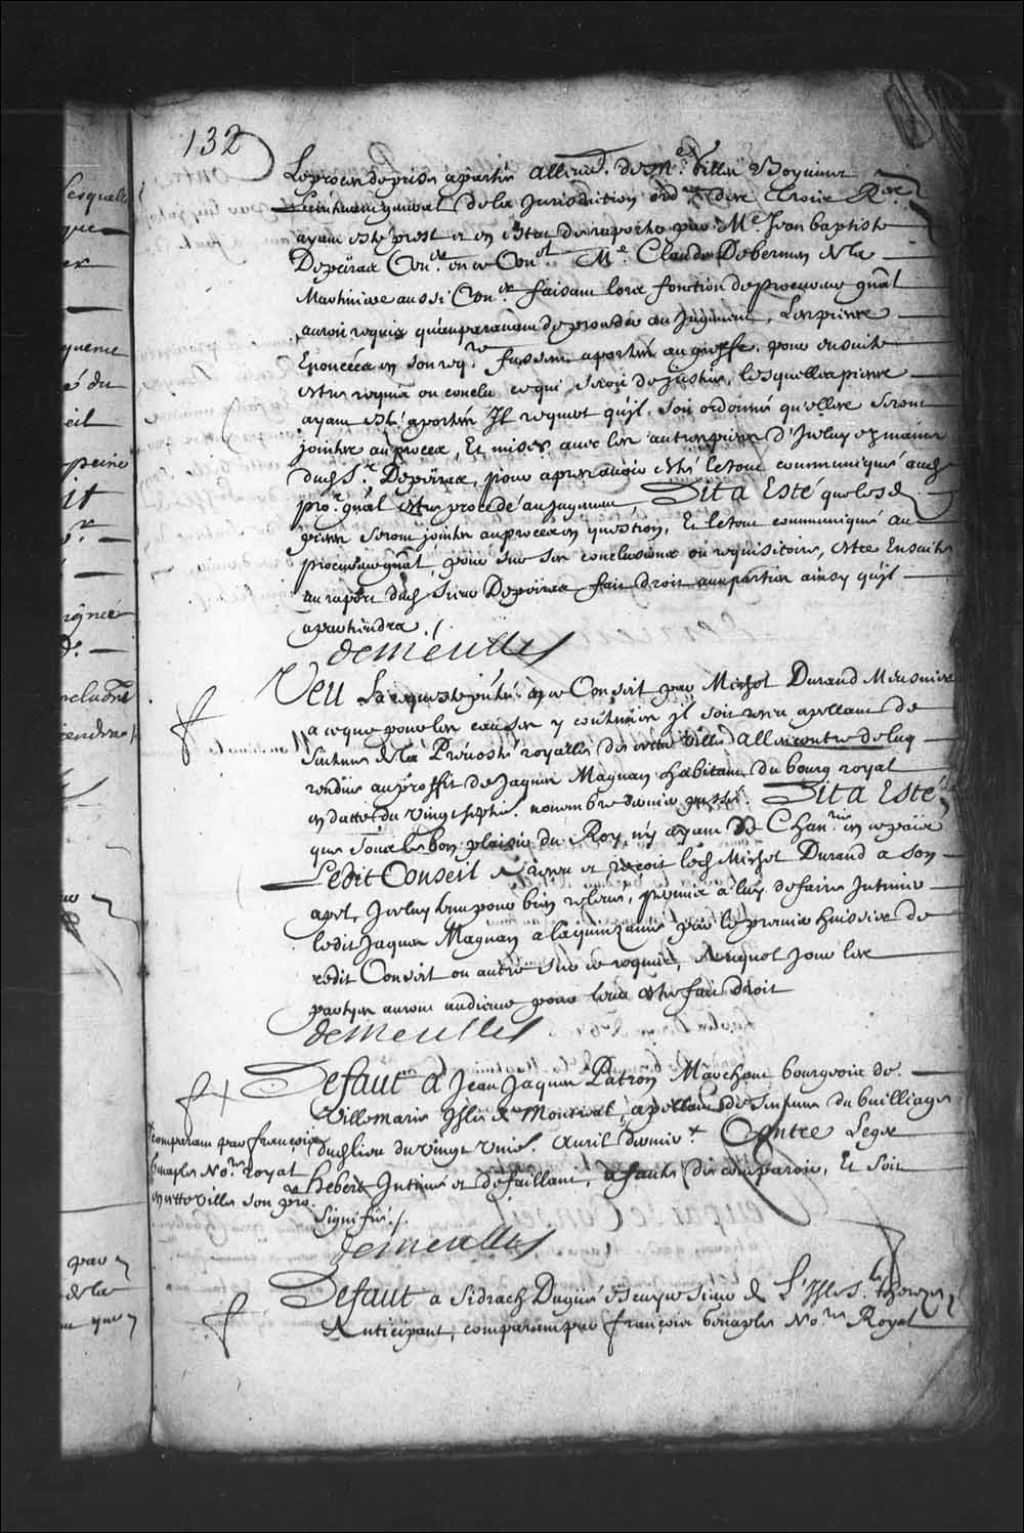 132
Le proces de prise a partie allencontre de Me. Villeu Boyvinet
Lieutenant general de la Jurisdiction ord.re des trois Riv.res
ayant esté prest et en estat de raporter par Me. Jean baptiste
Depeiras Con.er en ce Con.el Me. Claude Debermen de la
Martiniere aussi Con.er faisant lors fonction de procureur gnâl
auroit requis qu'auparavant de proceder au Jugement, Les pieces
Enoncées en son req.re fussent aportées au greffe, pour ensuite
estre requis ou conclu ce qui seroit de justice, lesquelles pieces
ayant esté aportées Il requiert qu'jl soit ordonné qu'elles seront
jointes au proces, Et mises avec les autres pieces d'Iceluy ez mains
dud. Sr. Depeiras, pour apres avoir esté le tout communiqué aud.
pro.r gnâl estre procedé au jugement Dit a Esté que lesd.
pieces seront jointes au proces en question, Et le tout communiqué au
procureur gnâl, pour sur ses conclusions ou requisitoire, estre Ensuite
au raport dud. Sieur Depeiras fait droit aux parties ainsy qu'jl
apartiendra ./.
demeulles
Veu La requeste pñtée en ce Conseil par Michel Durand Meusnier
a ce que pour les causes y contenües jl soit receu apellant de
Sentence de la Prevosté royalle de cette Ville allencontre de luy
rendüe au proffit de Jaques Magnan habitant du bourg royal
en datte du vingt septie. novembre dernier passé. Dit a Esté
que soubs le bon plaisir du Roy, n'y ayant de Chan.rie en ce païs
Ledit Conseil a receu et reçoit led. Michel Durand a son
apel, Jceluy tenu pour bien relevé, permis a luy de faire Intimer
ledit Jaques Magnan a la quinzaine par le premier huissier de
cedit Conseil ou autre sur ce requis, Auquel jour les
partyes auront audience pour leur estre fait droit
demeulles
Defaut a Jean Jaques Patron Marchant bourgeois de
Villemarie Isle de Montreal, apellant de sentence du bailliage
dud. lieu du vingt unie. Avril dernier + Contre Leger
hebert Intimé et defaillant, a faute de comparoir, Et soit
Signifié ./.
+ comparant par françois
Genaple No.re royal
en cette ville son pro.r
demeulles
Defaut a Sidrach Dugué Escuyer sieur de L'Isle Ste. therese,
Anticipant, comparant par françois Genaple No.re Royal